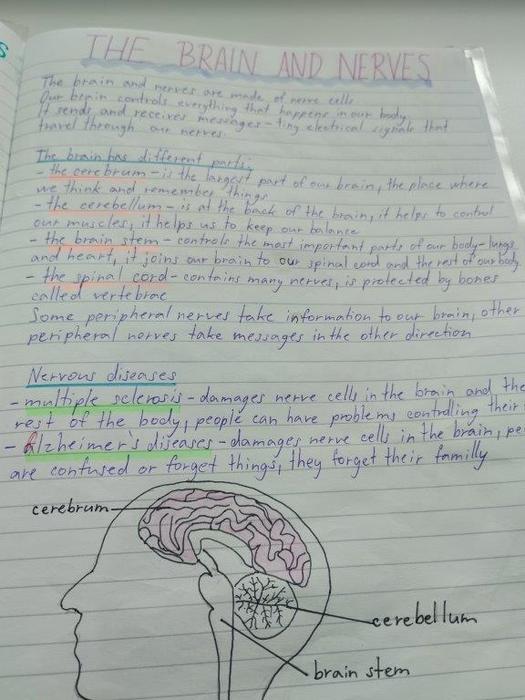 THE BRAIN AND NERVES
The brain and nerves are made of nerve cells
Our brain controls everything that happens in our body,
It sends and receives messages - tiny electrical signals that
travel through our nerves.
The brain has different parts;
- the cerebrum - is the largest part of our brain, the place where
we think and remember things
- the cerebellum - is at the back of the brain, it helps to control
our muscles, it helps us to keep our balance
- the brain stem - controls the most important parts of our body - lungs
and heart, it joins our brain to our spinal cord and the rest of our body
- the spinal cord - contains many nerves, is protected by bones
called vertebrae
Some peripheral nerves take information to our brain, other
peripheral nerves take messages in the other direction
Nervous diseases
- multiple sclerosis - damages nerve cells in the brain and the
rest of the body, people can have problems controlling their
- Alzheimer's diseases - damages nerve cells in the brain, pe
are confused or forget things, they forget their familly
cerebrum
cerebellum
brain stem